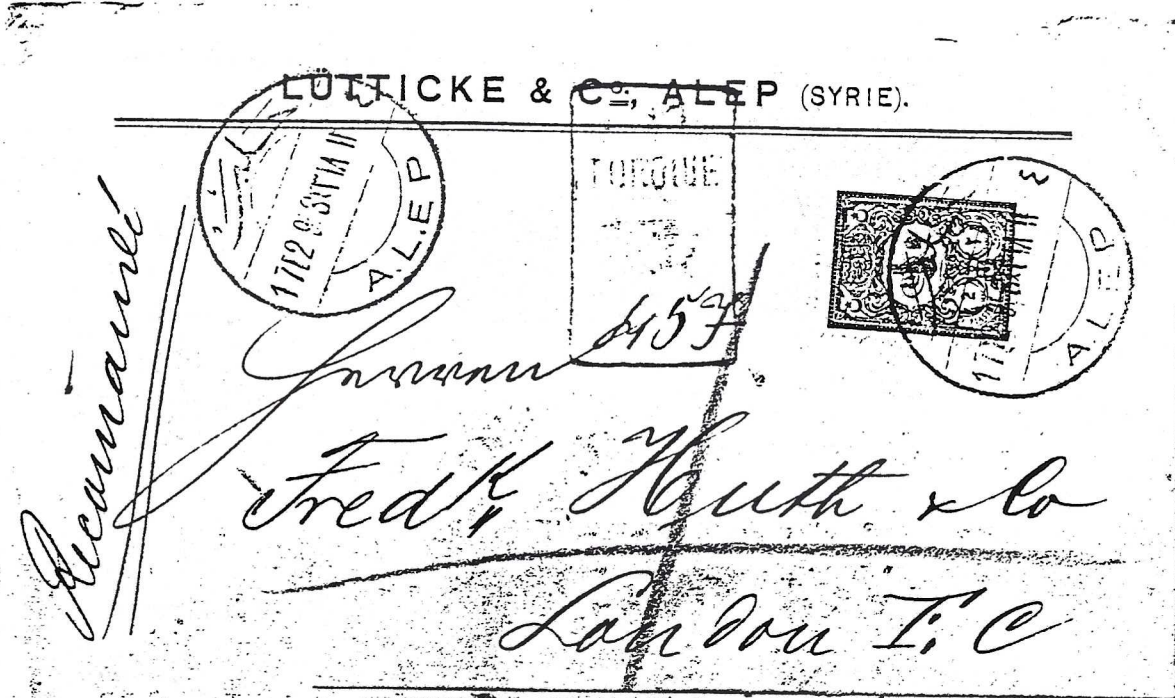 LÜTTICKE & Co., ALEP (SYRIE).
ALEP
TURQUIE
ALEP
Recommandé
Herren
Fredk Huth & Co
London E. C